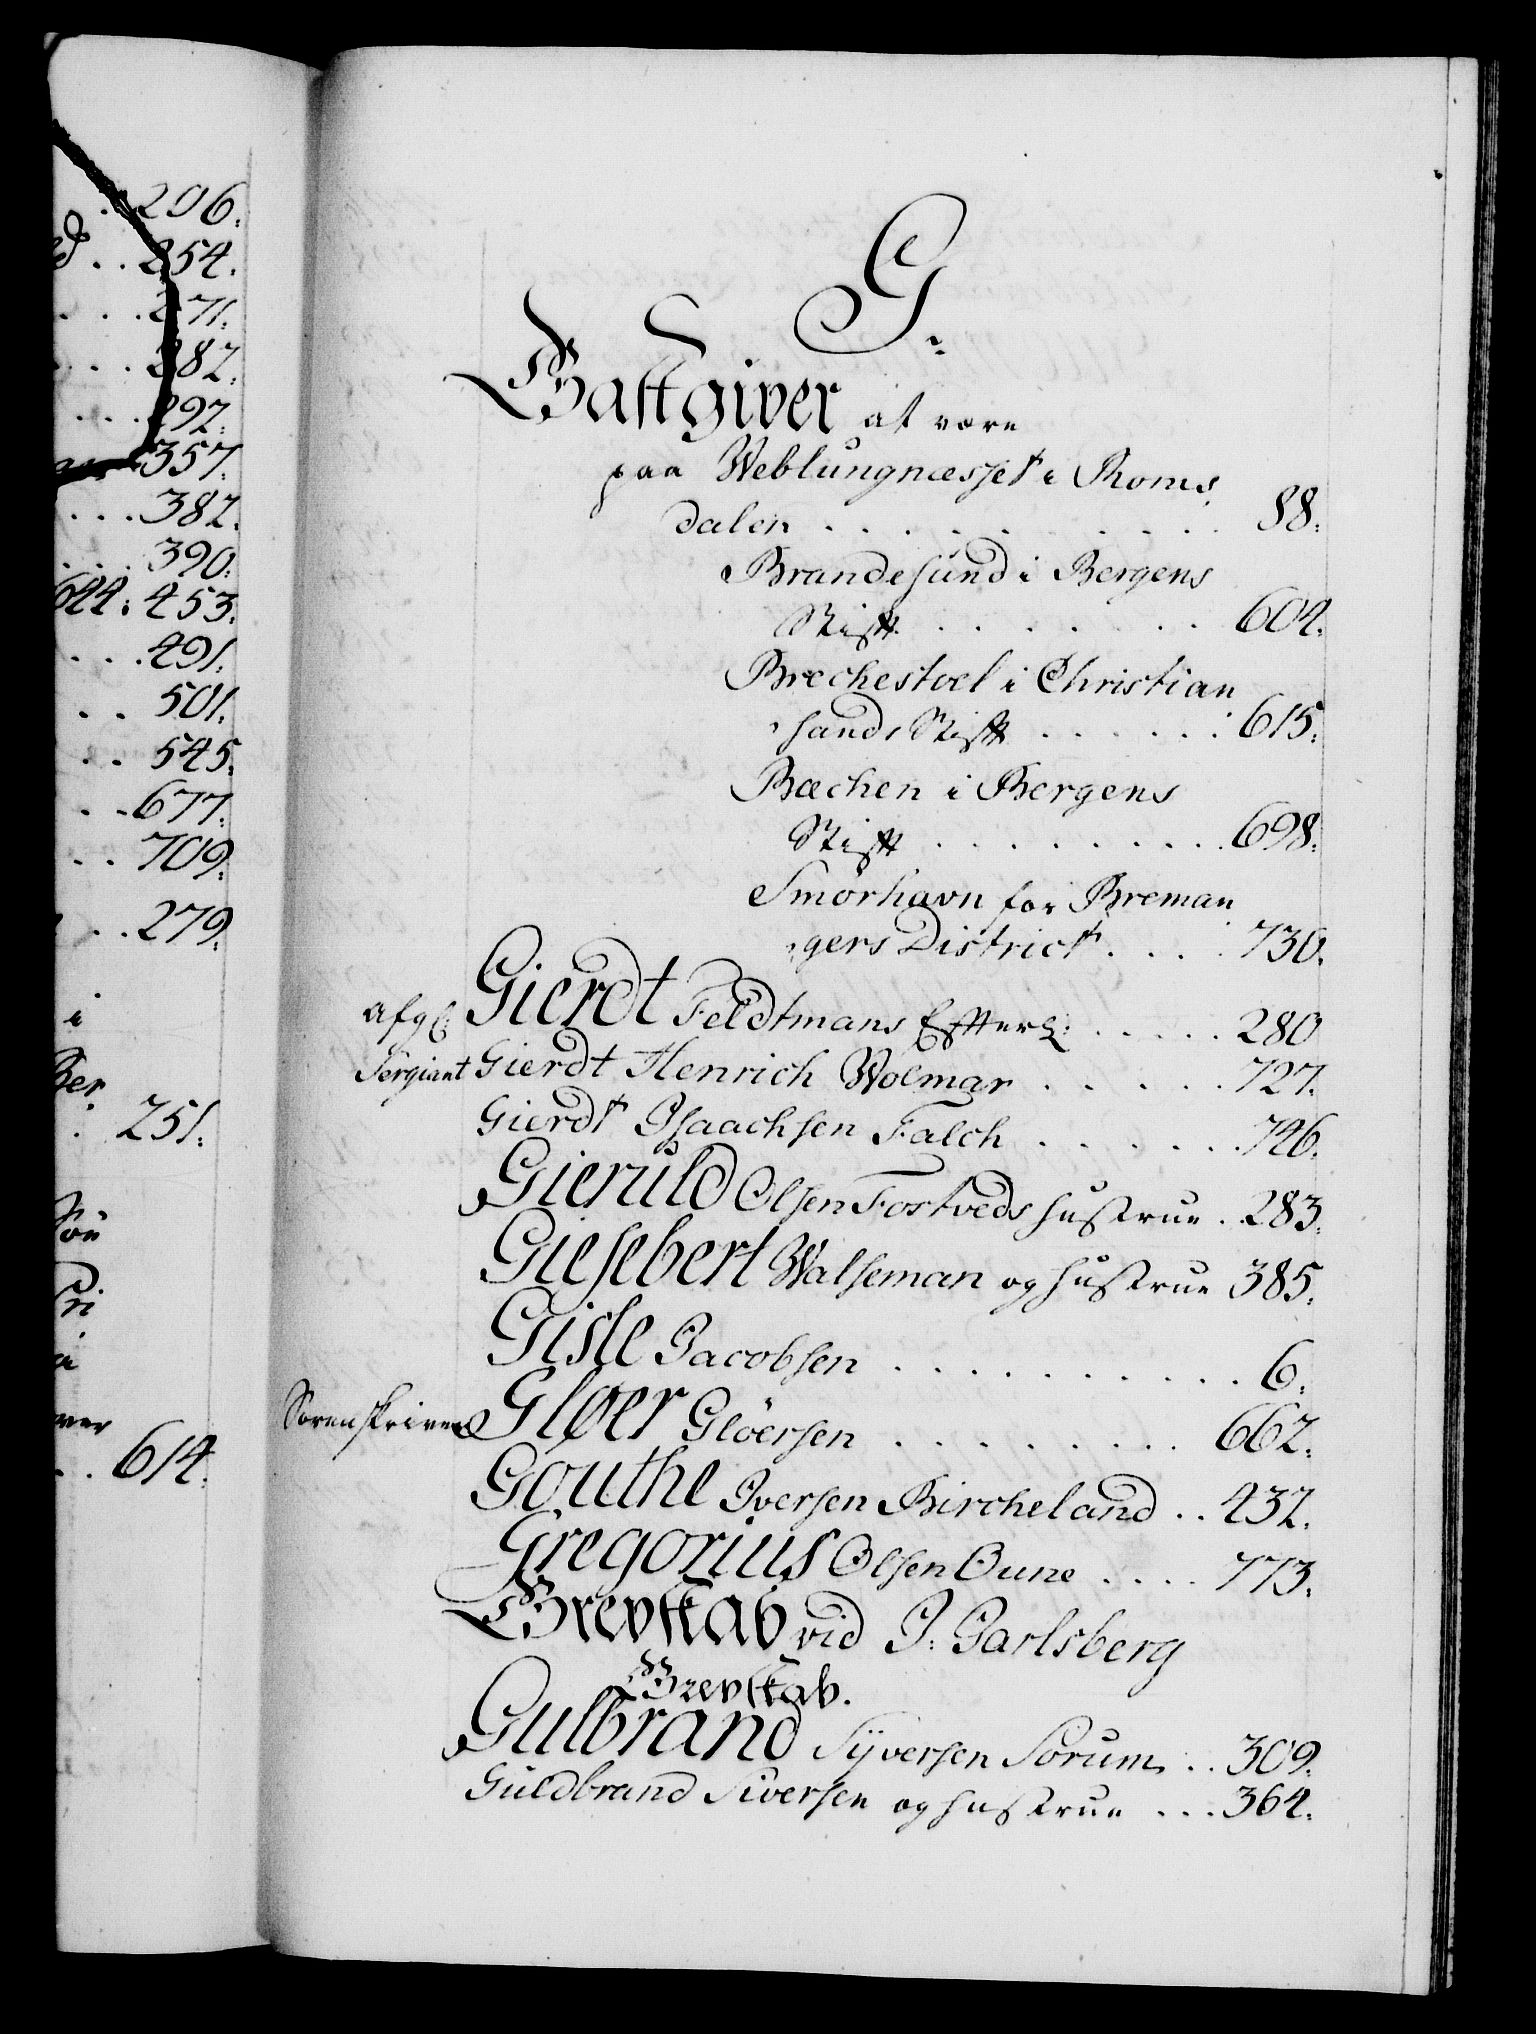 206.
254.
271.
282.
292.
357.
382.
390.
644. 453.
491.
501.
545.
677.
709.
279.
i
Ber
251.
614.
G.
Gastgiver at være
paa Weblungnæsset i Roms,
dalen . . . . . . . . . . . 88.
Brandesund i Bergens
Stift. . . . . . . . . 604.
Brechestoel i Christian
,sands Stift . . . . . . 615.
Bæchen i Bergens
Stift . . . . . . . . . . 698.
Smörhavn for Breman
,gers District. . . . 730.
afg: Gierdt Feldtmans Efterl: . . . . . 280
Sergiant Gierdt Henrich Wolmar . . . . . . 727.
Gierdt Isaachsen Falch . . . . . . . 746.
Gieruld Olsen Fostveds hustrue . . 283.
Giesebert Walseman og hustrue 385.
Gisle Jacobsen . . . . . . . . . . 6.
Sorenskriver Gløer Glöersen . . . . . . . . . 662.
Gouthe Iversen Bircheland . . 432.
Gregorius Olsen Oune . . . . 773.
Grevskab vid J: Jarlsberg
Grevskab.
Gulbrand Syversen Sorum . . 309.
Guldbrand Siversen og hustrue . . . 364.